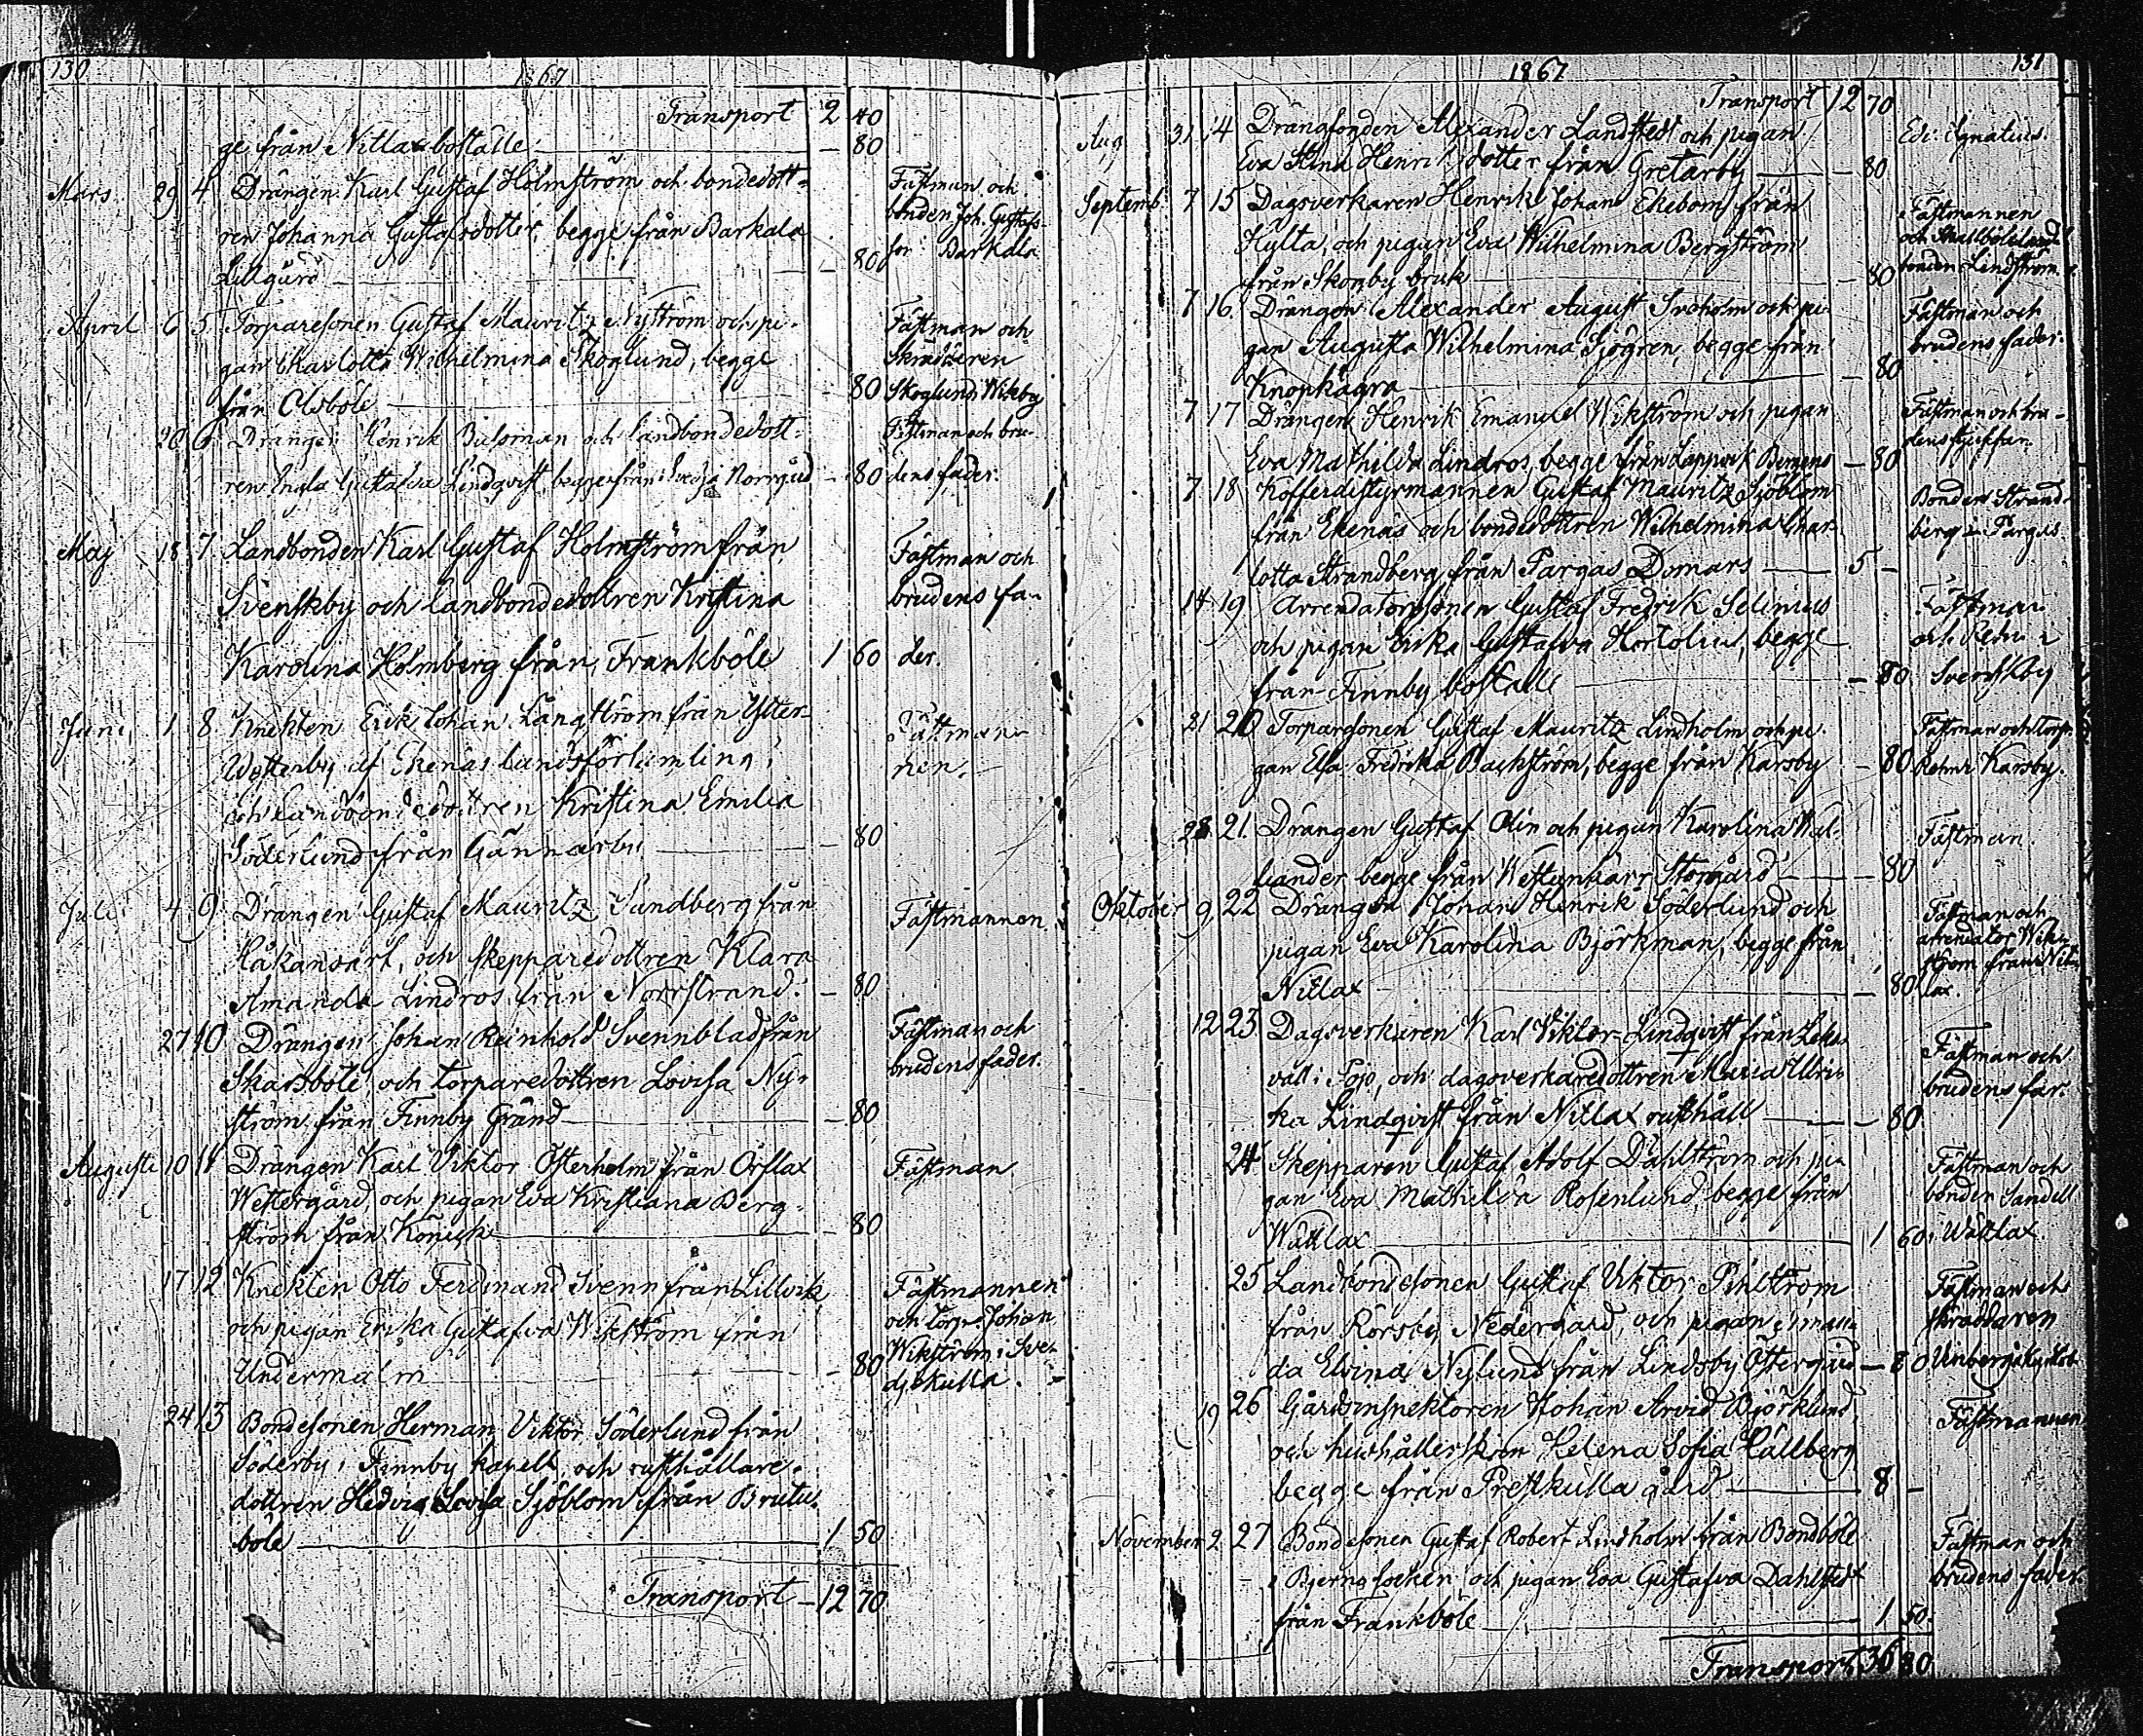 130
1867
Transport 2 40
ge från Nitlax boställe — 80
Mars 29 4 Drängen Karl Gustaf Holmström och bondedott-
ren Johanna Gustafsdotter, begge från Barkala
Lillgård — 80
Fästman och
bonden Joh. Gustafs-
son i Barkala
April 6 5 Torparesonen Gustaf Mauritz Nyström och pi-
gan Charlotta Wilhelmina Skoglund, begge
från Olsböle — 80
Fästman och
Skräddaren
Skoglund, Wikby
20 6 Drängen Henrik och landbondedott-
ren Gustafva Lindqvist, begge från Norrgård — 80
Fästman och bru-
dens fader.
Maj 18 7 Landbonden Karl Gustaf Holmström från
Svenskby och landbondedottren Kristina
Karolina Holmberg från Frankböle 1 60
Fästman och
brudens fa-
der.
Juni 1 8 Knekten Erik Johan Långström från Yster-
af Ekenäs landsförsamling,
och landbondedottren Kristina Emilia
Söderlund från Gännarby — 80
Fästman-
nen.
Juli 4 9 Drängen Gustaf Mauritz Sundberg från
Håkansart, och skepparedottren Klara
Amanda Lindros från Norrstrand. — 80
Fästmannen.
27 10 Drängen Johan Reinhold Svennblad från
Skarsböle och torparedottren Lovisa Ny-
ström från Finnby Gränd — 80
Fästman och
brudens fader.
Augusti 10 11 Drängen Karl Viktor Österholm från Örslax
Westergård, och pigan Eva Kristiana Berg-
ström från — 80
Fästman
17 12 Knekten Otto Ferdinand Svenn från Lillvik
och pigan Erika Gustafva Wikström från
Undermalm — 80
Fästmannen
och torp. Johan
Wikström i Sve-
djekulla.
24 13 Bondesonen Herman Viktor Söderlund från
Söderby i Finnby kapell, och rusthållare-
dottren Hedvig Lovisa Sjöblom från Brutu-
böle — 1 50
Transport — 12 70
131
1867
Transport 12 70
Aug 31 14 Alexander Landstedt och pigan
Eva Stina Henriksdotter från Gretarby — 80
Ed. Ignatius.
Septemb. 7 15 Dagsverkaren Henrik Johan Ekebom från
Hylta, och pigan Eva Wilhelmina Bergström
från Skogby bruk — 80
Fästmannen
och Skallböle land-
bonden Lindström.
7 16 Drängen Alexander August och pi-
gan Augusta Wilhelmina Sjögren, begge från
Knopkägra — 80
Fästman och
brudens fader.
7 17 Drängen Henrik Emanuel Wikström och pigan
Eva Mathilda Lindros, begge från Lappvik — 80
Fästman och bru-
dens styffar.
7 18 Kofferdistyrmannen Gustaf Mauritz Sjöblom
från Ekenäs och bondedottren Wilhelmina Char-
lotta Strandberg från Pargas Domars — 5 —
Bonden Strand-
berg i Pargas.
14 19 Arrendatorssonen Gustaf Fredrik Selenius
och pigan Erika Gustafva, begge
från Finnby boställe — 80
Fästman
och
Svenskby
21 20 Torparsonen Gustaf Mauritz Lindholm och pi-
gan Eva Fredrika Backström, begge från Karsby — 80
Fästman och torp.
Karsby.
28 21. Drängen Gustaf Olin och pigan Karolina Wal-
lander begge från Westankärr Storgård — 80
Fästman.
Oktober 9 22 Drängen Johan Henrik Söderlund och
pigan Eva Karolina Björkman, begge från
Nitlax — 80
Fästman och
arrendator Wik-
ström från Nit-
lax.
12 23 Dagsverkaren Karl Viktor Lindqvist från
vall i Pojo, och dagsverkaredottren Maria Ulri-
ka Lindqvist från Nitlax rusthåll — 80
Fästman och
brudens far.
24 Skepparen Gustaf Adolf Dahlström och pi-
gan Eva Mathilda Rosenlund, begge från
Wättlax — 1 60
Fästman och
bonden Sandell
i Wättlax.
25 Landbondesonen Gustaf Viktor Pihlström
från Rörsby Nedergård, och pigan Aman-
da Elvina Nylund från Lindsby Östergård — 80
Fästman och
skräddaren
19 26 Gårdsinspektoren Johan Arvid Björklund
och hushållerskan Helena Sofia Hällberg
begge från Prestkulla gård — 8 —
Fästmannen
November 2 27 Bondesonen Gustaf Robert Lindholm från Bondböle
i Bjerno socken, och pigan Eva Gustafva Dahlstedt
från Frankböle — 1 50
Fästman och
brudens fader.
Transport 36 80